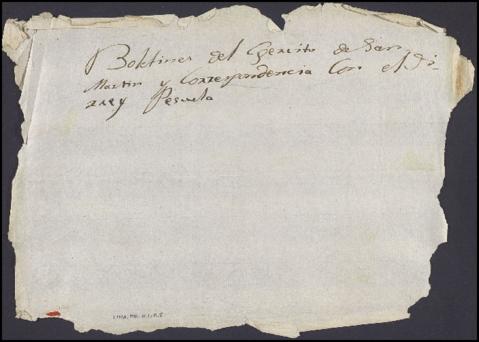 Boletines del Exercito de San
Martin y Correspondencia Con el Vi-
rrey Pesuela